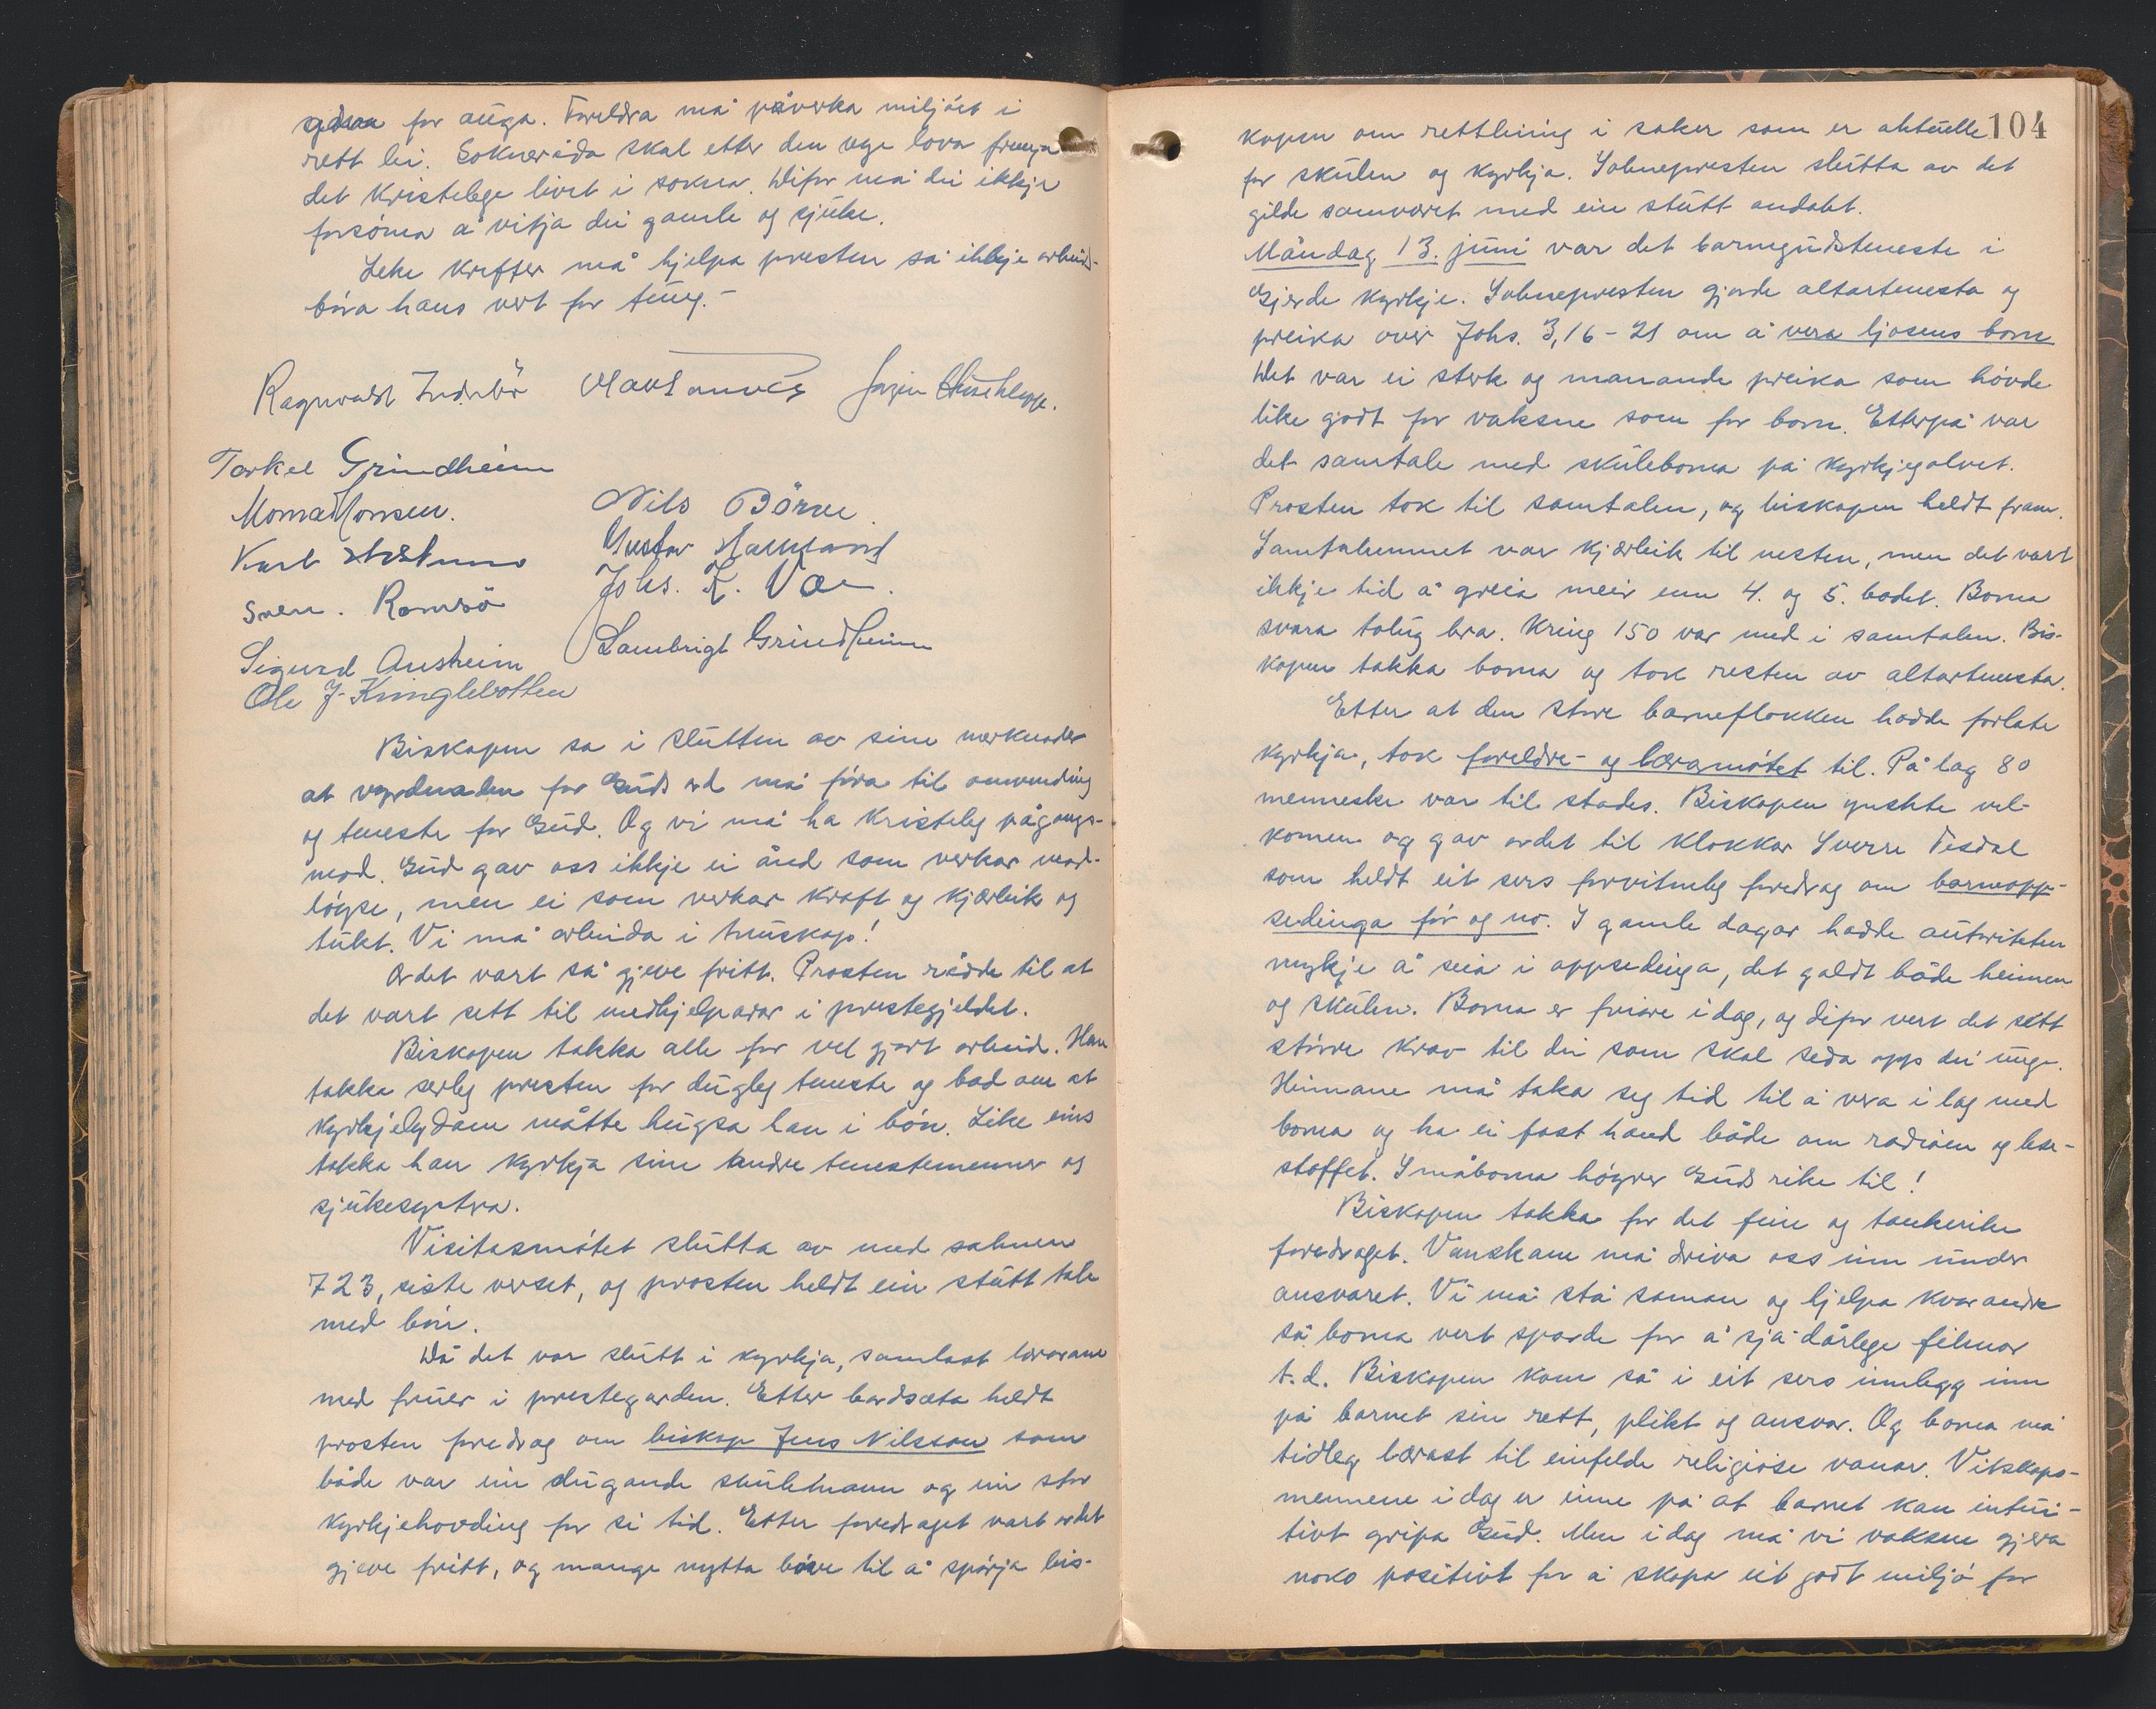 for auga. Foreldra må påverka miljöet i
rett lei. Sokneråda skal etter den nye lova fremja
det kristelege livet i sokna. Difor må dei ikkje
forsöma å vitja dei gamle og sjuke.
Leke krefter må hjelpa presten så ikkje arbeids-
böra hans vert for tung.-
Ragnvald Indrebö
Torkel Grindheim
Nils Börve
Gustav
Johs. K.
Sven. Romsö
Sigurd Ausheim
Lambrigt Grindheim
Ole J. Kringlebotten
Biskopen sa i slutten av sine merknader
at vyrdnaden for Guds ord må föra til omvending
og teneste for Gud. Og vi må ha kristeleg pågangs-
mod. Gud gav oss ikkje ei ånd som verkar mod-
löyse, men ei som verkar kraft og kjærleik og
tukt. Vi må arbeida i truskap!
Ordet vart så gjeve fritt. Prosten rådde til at
det vart sett til medhjelparar i prestegjeldet.
Biskopen takka alle for vel gjort arbeid. Han
takka serleg presten for dugleg teneste og bad om at
kyrkjelydane måtte hugsa han i bön. Like eins
takka han kyrkja sine andre tenestemenner og
sjukesystra.
Visitasmötet slutta av med salmen
723, siste verset, og prosten heldt ein stutt tale
med bön.
Då det var slutt i kyrkja, samlast lærarane
med fruer i prestegarden. Etter bordsæta heldt
prosten foredrag om biskop Jens Nilsson som
både var ein dugande skulemann og ein stor
kyrkjehovding for si tid. Etter foredraget vart ordet
gjeve fritt, og mange nytta höve til å spörja bis-
104
kopen om rettleiing i saker som er aktuelle
for skulen og kyrkja. Soknepresten slutta av det
gilde samværet med ein stutt andakt.
Måndag 13. juni var det barnegudsteneste i
Gjerde kyrkje. Soknepresten gjorde altartenesta og
preika over Johs. 3,16-21 om å vera ljosens born
Det var ei sterk og manande preika som hövde
like godt for vaksne som for born. Etterpå var
det samtale med skuleborna på kyrkjegolvet.
Prosten tok til samtalen, og biskopen heldt fram.
Samtalemnet var kjærleik til nesten, men det vart
ikkje tid å greia meir enn 4. og 5. bodet. Borna
svara tolug bra. Kring 150 var med i samtalen. Bis-
kopen takka borna og tok resten av altartenesta.
Etter at den store barneflokken hadde forlate
kyrkja, tok foreldre- og læramötet til. På lag 80
menneske var til stades. Biskopen ynskte vel-
komen og gav ordet til klokkar Sverre Tesdal
som heldt eit sers forvitneleg foredrag om barneopp-
sedinga för og no. I gamle dagar hadde autoriteten
mykje å seia i oppsedinga, det galdt både heimen
og skulen. Borna er friare i dag, og difor vert det sett
större krav til dei som skal seda opp dei unge.
Heimane må taka seg tid til å vera i lag med
borna og ha ei fast hand både om radioen og lese-
stoffet. Småborna höyrer Guds rike til!
Biskopen takka for det fine og tankerike
foredraget. Vanskane må driva oss inn under
ansvaret. Vi må stå saman og hjelpa kvarandre
så borna vert sparde for å sjå dårlege filmar
t.d. Biskopen kom så i eit sers innlegg inn
på barnet sin rett, plikt og ansvar. Og borna må
tidleg lærast til einfelde religiöse vanar. Vitskaps-
mennene i dag er inne på at barnet kan intui-
tivt gripa Gud. Men i dag må vi vaksne gjera
noko positivt for å skapa eit godt miljö for